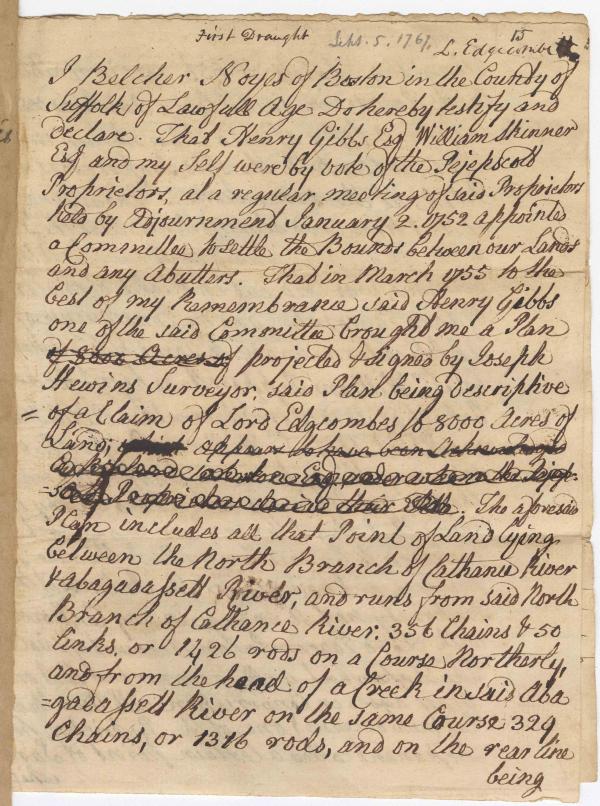 First Draught Sept. 5. 1767. 15
L. Edgcombe
I Belcher Noyes of Boston in the County of
Suffolk of Lawfull Age Do hereby testify and
declare. That Henry Gibbs Esq William Skinner
Esq and my Self were by vote of the Pejepscott
Proprietors, at a regular meeting of said Proprietors
held by Adjournment January 2. 1752 appointed
a Committee to settle the Bounds between our Lands
and any Abutters. That in March 1755 to the
best of my Remembrance said Henry Gibbs
one of the said Committee brought me a Plan
of 8000 Acres of projected & signed by Joseph
Hewins Surveyor, said Plan being descriptive
= of a Claim of Lord Edgcombes to 8000 Acres of
Land, which appears to have been
Esq under whom the Pejep-
=scott Proprietors derive their Title. The aforesaid
Plan includes all that Point of Land lying
between the North Branch of Cathance River
& abagadassett River, and runs from said North
Branch of Cathance River. 356 Chains & 50
links. or 1426 rods on a Course Northerly,
and from the head of a Creek in said Aba
=gadassett River on the same Course 329
Chains, or 1316 rods, and on the rear line
being